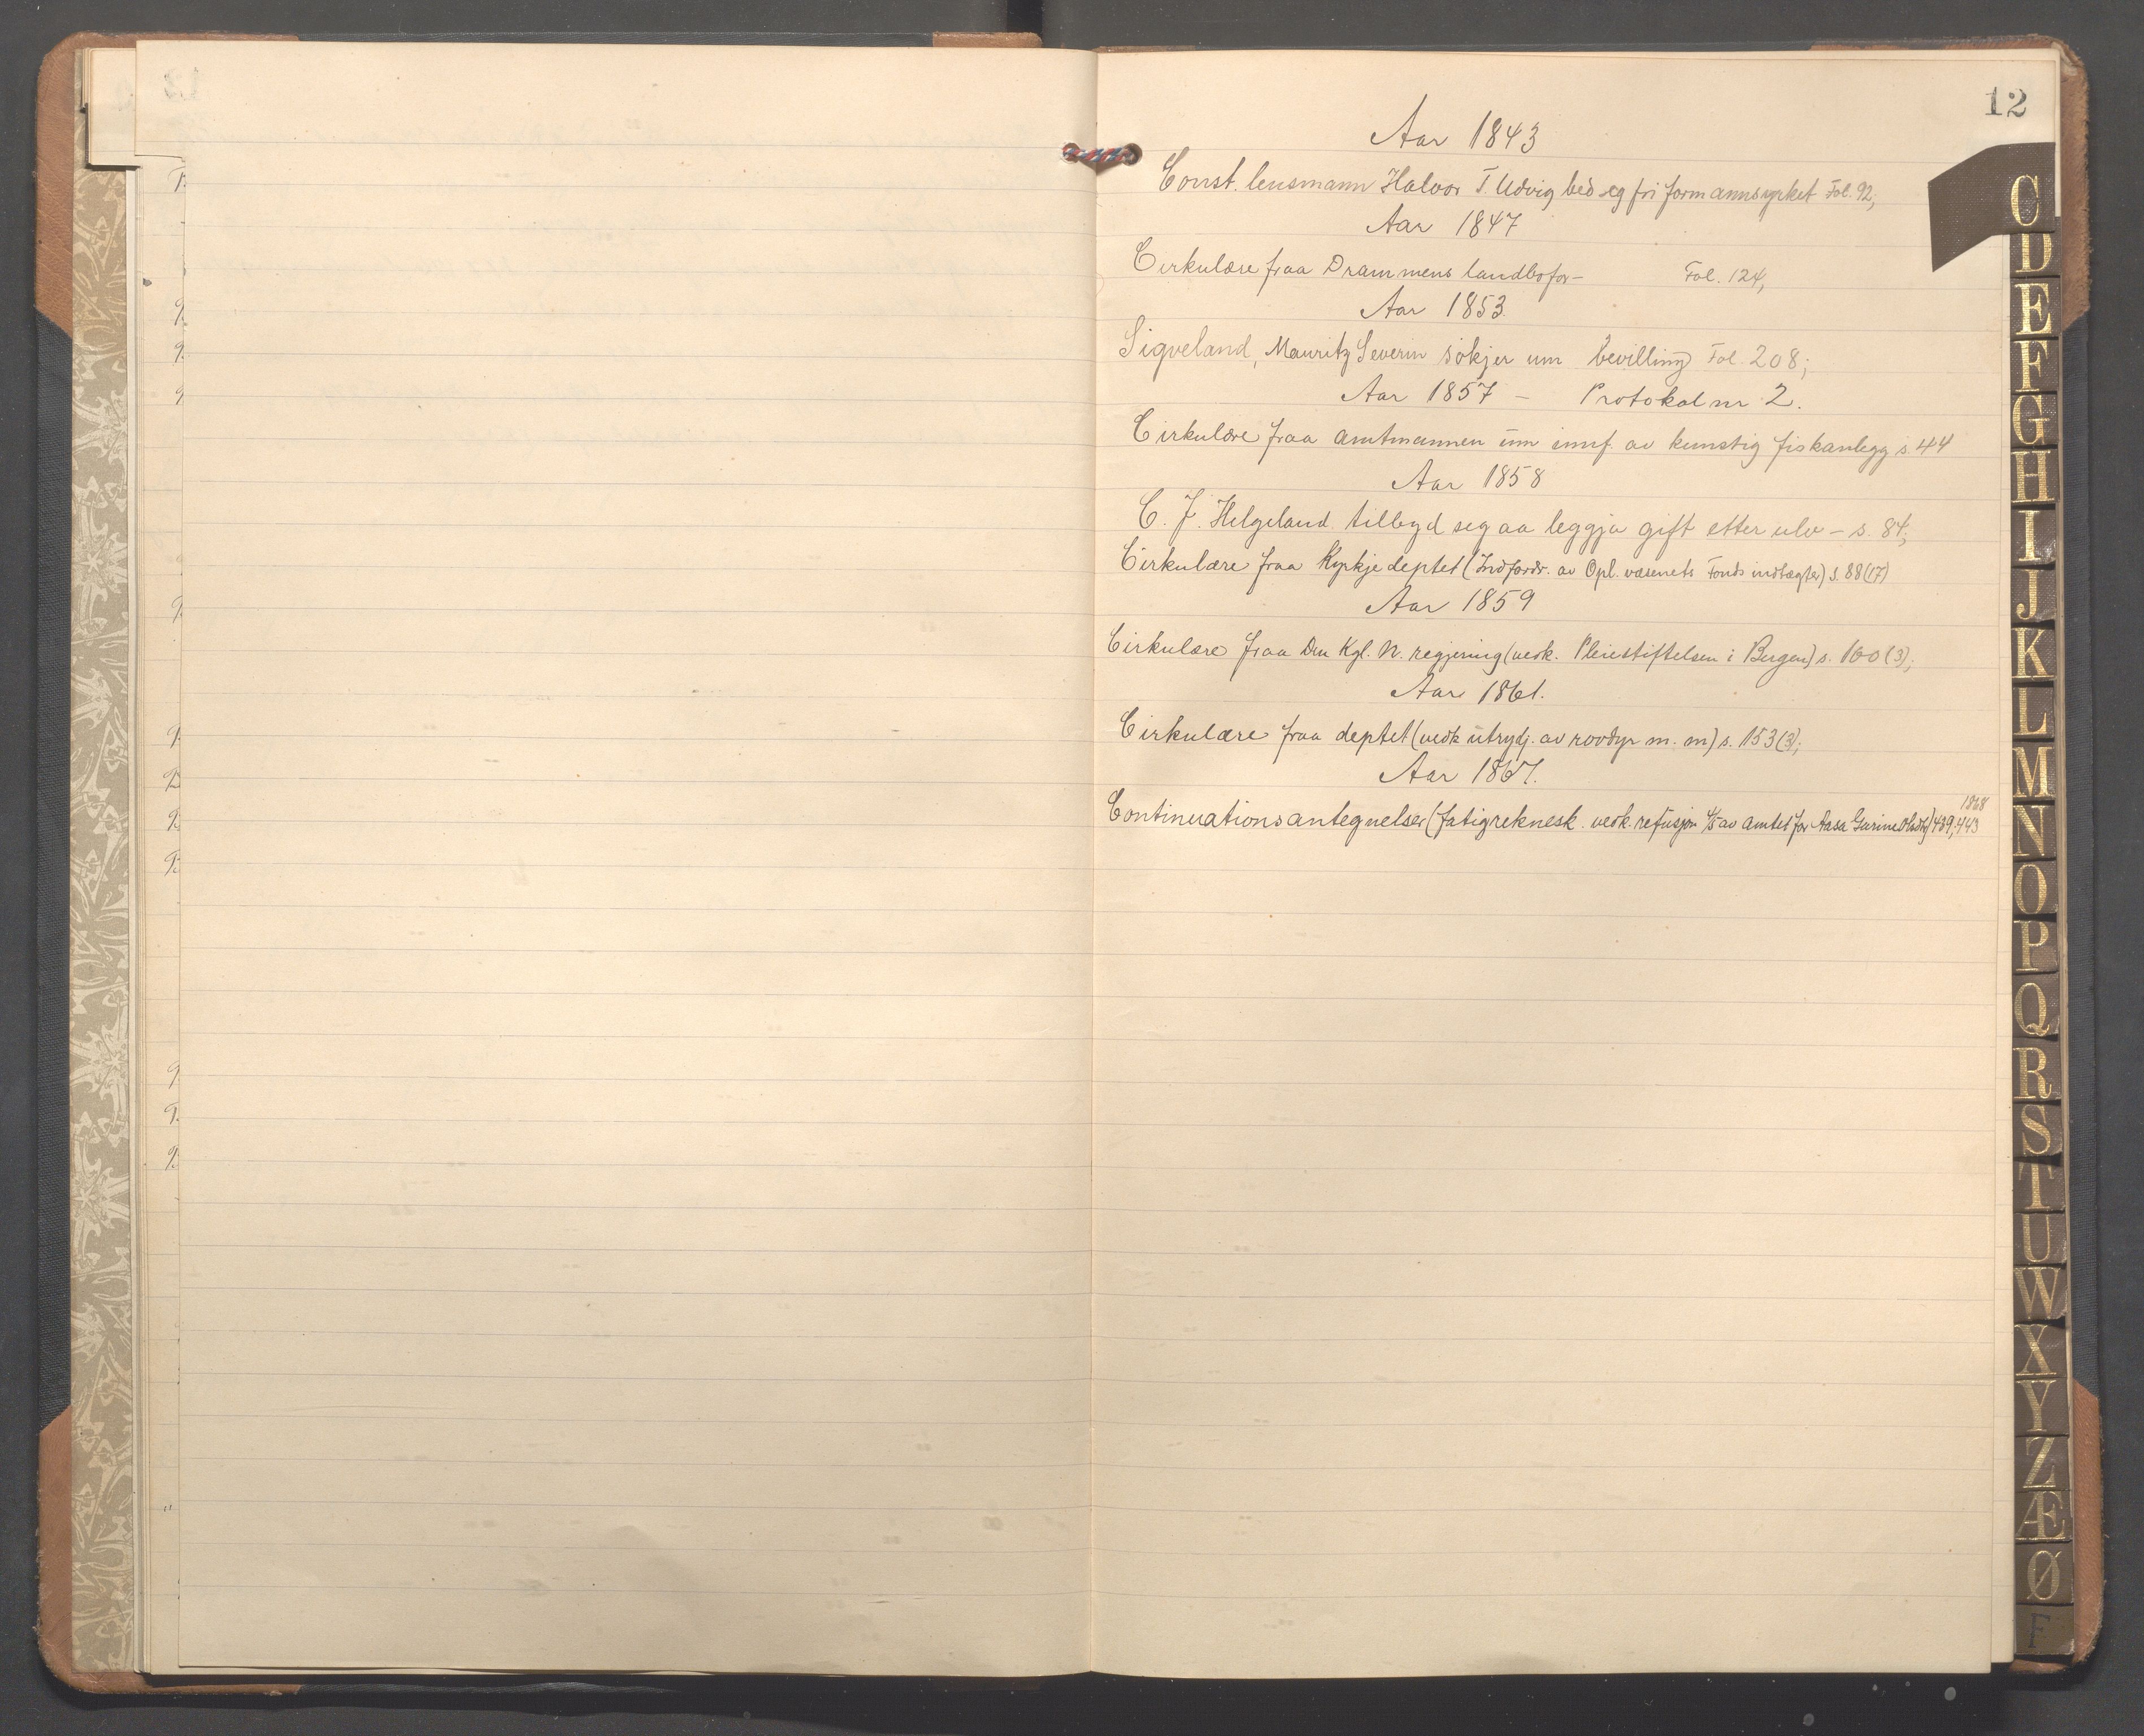 12
Aar 1843
Const. lensmann Halvor T. Udvig bed seg fri formannsyrket Fol. 92;
Aar 1847
Cirkulære fraa Drammens landbofor- Fol. 124,
Aar 1853.
Sigveland, Mauritz Severin søkjer um bevilling Fol. 208;
Aar 1857 - Protokol nr 2.
Cirkulære fraa amtmannen um innf. av kunstig fiskanlegg s. 44
Aar 1858
C. J. Helgeland tilbyd seg aa leggja gift etter ulv - s. 84;
Cirkulære fraa Kyrkjedeptet (Indfordr. av Opl. væsenets Fonds indtægter) s. 88(17)
Aar 1859
Cirkulære fraa Den Kgl. N. regjering (vedk. Pleiestiftelsen i Bergen) s. 100(3);
Aar 1861.
Cirkulære fraa deptet (vedk utrydj. av rovdyr m. m) s. 153(3);
Aar 1867.
1868
Continuationsantegnelser (fatigreknesk. vedk. refusjon 4/5 av amtet for Aasa Gurine Olsdtr) 439, 443
C
D
E
F
G
H
I
J
K
L
M
N
O
P
Q
R
S
T
U
W
X
Y
Z
Æ
Ø